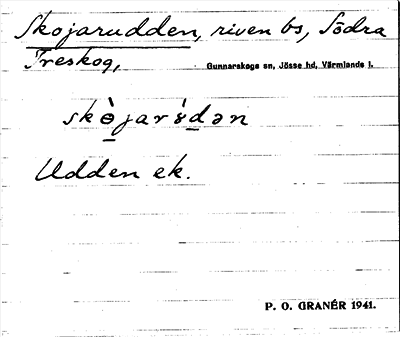 Skojarudden, riven bs, Södra
Treskog,
Gunnarskogs sn, Jösse hd, Värmlands l.
skɵ̀jarúdən
Udden ek.
P. O. GRANÉR 1941.